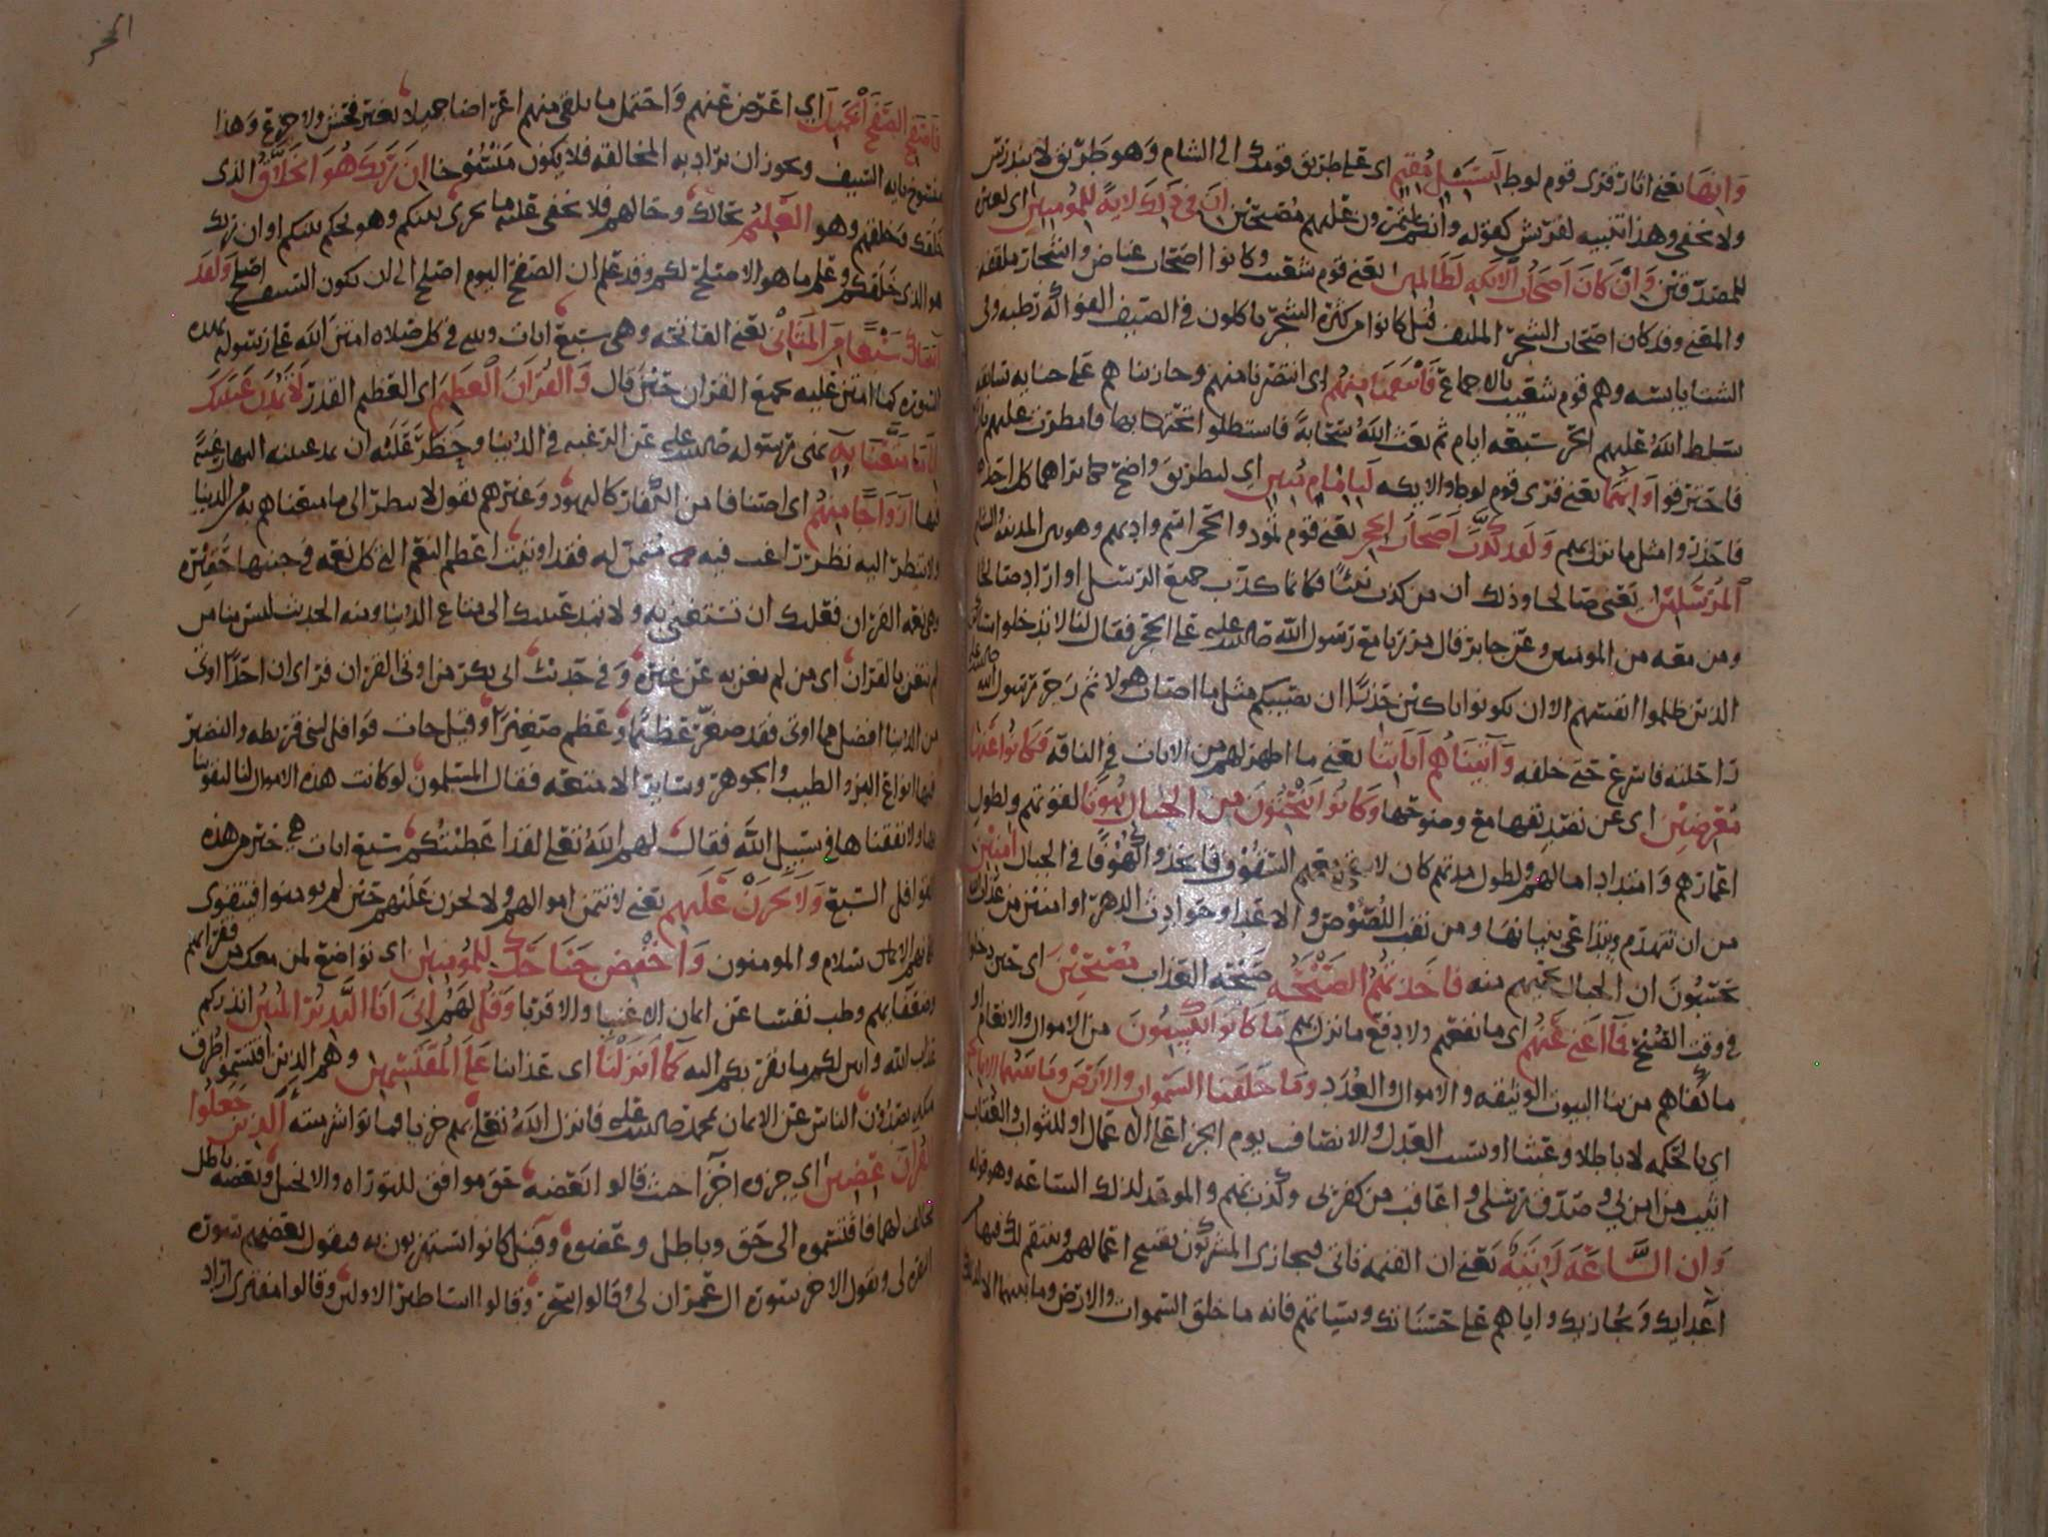 وانها يعني اثار قرى قوم لوط لبسبيل مقيم اي على طريق قومك الى الشام وهو طريق لا يندرس
ولا يخفى وهذا تنبيه لقريش كقوله وانكم لتمرون عليهم مصبحين ان في ذلك لاية للمومنين اي لعبرة
للمصدقين وان كان اصحاب الايكه لظالمين يعني قوم شعيب وكانوا اصحاب غياض واشجار ملتفه
وقد كان اصحاب الشجر الملتف قيل كانوا من كثرة الشجر ياكلون في الصيف الفواكه رطبه وفي
الشتا يابسه وهم قوم شعيب بالاجماع فانتقمنا منهم اي انتصرنا منهم وجازيناهم على
سلط الله عليهم الحر سبعه ايام ثم بعث الله سحابة فاستظلوا تحتها فامطرت عليهم نارا
فاحترقوا وانهما يعني قرى قوم لوط والايكه لبامام مبين اي لبطريق واضح
مثل ما نزل بهم ولقد كذب اصحاب الحجر يعني قوم ثمود والحجر اسم واديهم وهو بين المدينه والشام
المرسلين يعني صالحا وذلك ان من كذب نبيا فكانما كذب جميع الرسل او اراد صالحا
ومن معه من المومنين وعن جابر قال مررنا مع رسول الله صلى الله عليه على الحجر فقال لنا لا تدخلوا مساكن
الذين ظلموا انفسهم الا ان تكونوا باكين حذرا ان يصيبكم مثل ما اصاب هولا ثم زجر رسول الله صلى الله عليه
راحلته فاسرع حتى خلفه واتيناهم اياتنا يعني ما اظهر لهم من الايات في الناقه فكانوا عنها
معرضين اي عن تصديقها مع وضوحها وكانوا ينحتون من الجبال بيوتا لقوتهم ولطول
اعمارهم وامتداد امالهم ولطول مدتهم كان لا السقوف فاتخذوا كهوفا في الجبال امنين
من ان تهدم ويتداعى بنيانها ومن نقب اللصوص والاعدا وحوادث الدهر او امنين من عذاب الله
يحسبون ان الجبال تحميهم منه فاخذتهم الصيحه صيحه العذاب مصبحين اي حين دخلوا
في وقت الصبح فما اغنى عنهم اي ما نفعهم ولا دفع ما نزل بهم ما كانوا يكسبون من الاموال والانعام او
ما كفاهم من بنا البيوت الوثيقه والاموال والعدد وما خلقنا السموات والارض وما بينهما الا بالحق
اي بالحكمه لا باطلا وعبثا او بسبب العدل والانصاف يوم الجزا على الاعمال او للثواب والعقاب
اثيب من امن بي وصدق رسلي واعاقب من كفر بي وكذب بهم والموعد لذلك الساعه وهو قوله
وان الساعة لاتية يعني ان القيمه تاتي فيجازى المشركون بقبيح اعمالهم وينتقم لك فيها من
اعدايك ويجازيك واياهم على حسناتك وسياتهم فانه ما خلق السموات والارض وما بينهما الا لذلك
الحجر
فاصفح الصفح الجميل اي اعرض عنهم واحتمل ما تلقى منهم اعراضا جميلا بغير فحش ولا جزع وهذا
منسوخ بايه السيف ويجوز ان يراد به المخالقه فلا يكون منسوخا ان ربك هو الخلاق الذي
خلقك وخلقهم وهو العليم بحالك وحالهم فلا يخفى عليه ما يجري بينكم وهو يحكم بينكم او ان ربك
هو الذي خلقكم وعلم ما هو الاصلح لكم وقد علم ان الصفح اليوم اصلح الى ان يكون السيف اصلح ولقد
اتيناك سبعا من المثاني يعني الفاتحه وهي سبع ايات وتثنى في كل صلاه امتن الله على رسوله بهذه
السورة كما امتن عليه بجميع القران حين قال والقران العظيم اي العظيم القدر لا تمدن عينيك
الى ما متعنا به نهى رسوله صلى الله عليه عن الرغبه في الدنيا وحظر عليه ان يمد عينيه اليها رغبة
فيها ازواجا منهم اي اصنافا من الكفار كاليهود وغيرهم يقول لا تنظر الى ما متعناهم به من الدنيا
ولا تنظر اليه نظر راغب فيه متمن له فقد اوتيت اعظم النعم التي كل نعمه في جنبها حقيرة
وهي نعمه القران فعليك ان تستغني به ولا تمد عينيك الى متاع الدنيا ومنه الحديث ليس منا من
لم يتغن بالقران اي من لم يغن به عن غيره وفي حديث ابي بكر من اوتي القران فراى ان احدا اوتي
من الدنيا افضل مما اوتي فقد صغر عظيما وعظم صغيرا وقيل جات قوافل لبني قريظه والنضير
فيها انواع البز والطيب والجوهر وساير الامتعه فقال المسلمون لو كانت هذه الاموال لنا لتقوينا
بها ولانفقناها في سبيل الله فقال لهم الله تعالى لقد اعطيتكم سبع ايات هي خير من هذه
القوافل السبع ولا تحزن عليهم يعني لا تتمن اموالهم ولا تحزن عليهم حين لم يومنوا فيتقوى
بهم الاسلام والمومنون واخفض جناحك للمومنين اي تواضع لمن معك من فقرايهم
وضعفايهم وطب نفسا عن ايمان الاغنيا والاقربا وقل لهم اني انا النذير المبين انذركم
عذاب الله وابين لكم ما يقربكم اليه كما انزلنا اي عذابنا على المقتسمين وهم الذين اقتسموا طرق
مكه يصدون الناس عن الايمان بمحمد صلى الله عليه فانزل الله تعالى بهم خزيا فماتوا شر ميتة الذين جعلوا
القران عضين اي جزوه اجزآ حيث قالوا بعضه حق موافق للتوراه والانجيل وبعضه باطل
مخالف لهما فاقتسموه الى حق وباطل وعضوه وقيل كانوا يستهزون به فيقول بعضهم سورة
البقره لي ويقول الاخر سورة ال عمران لي وقالوا سحر وقالوا اساطير الاولين وقالوا مفترى اراد